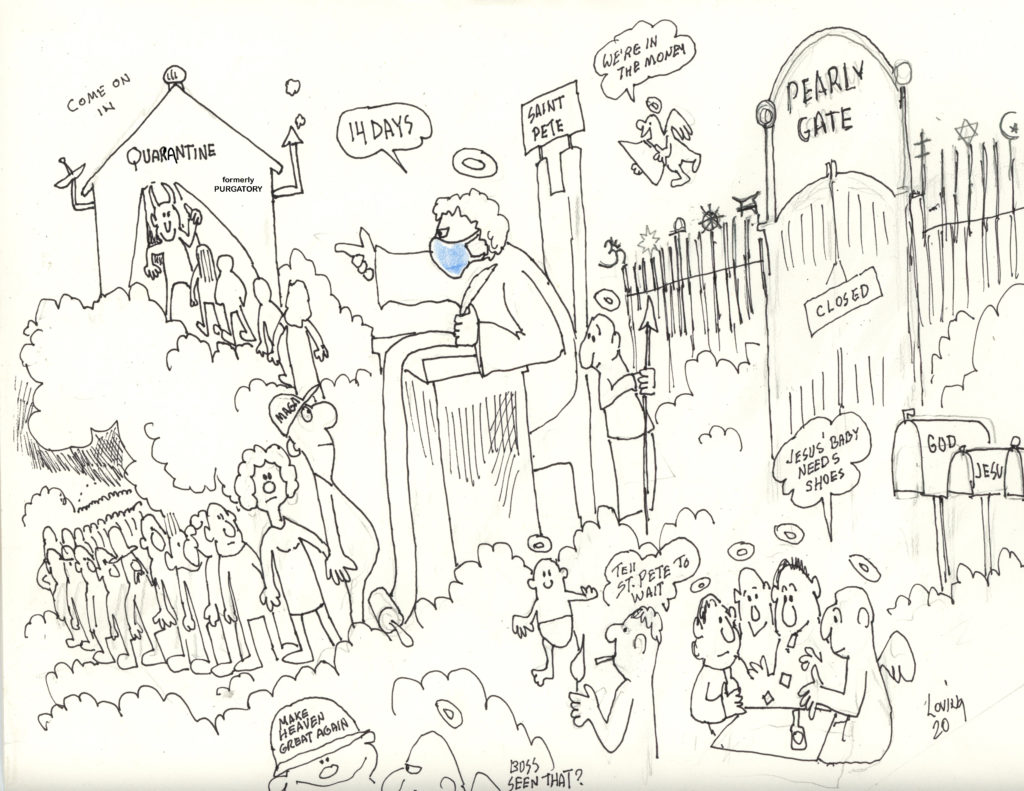 COME ON
IN
QUARANTINE
formerly
PURGATORY
14 DAYS
SAINT
PETE
WE'RE IN
THE MONEY
PEARLY
GATE
CLOSED
MAGA
GOD
JESU
JESUS' BABY
NEEDS
SHOES
TELL
ST. PETE TO
WAIT
MAKE
HEAVEN
GREAT AGAIN
BOSS
SEEN THAT?
Loving
20